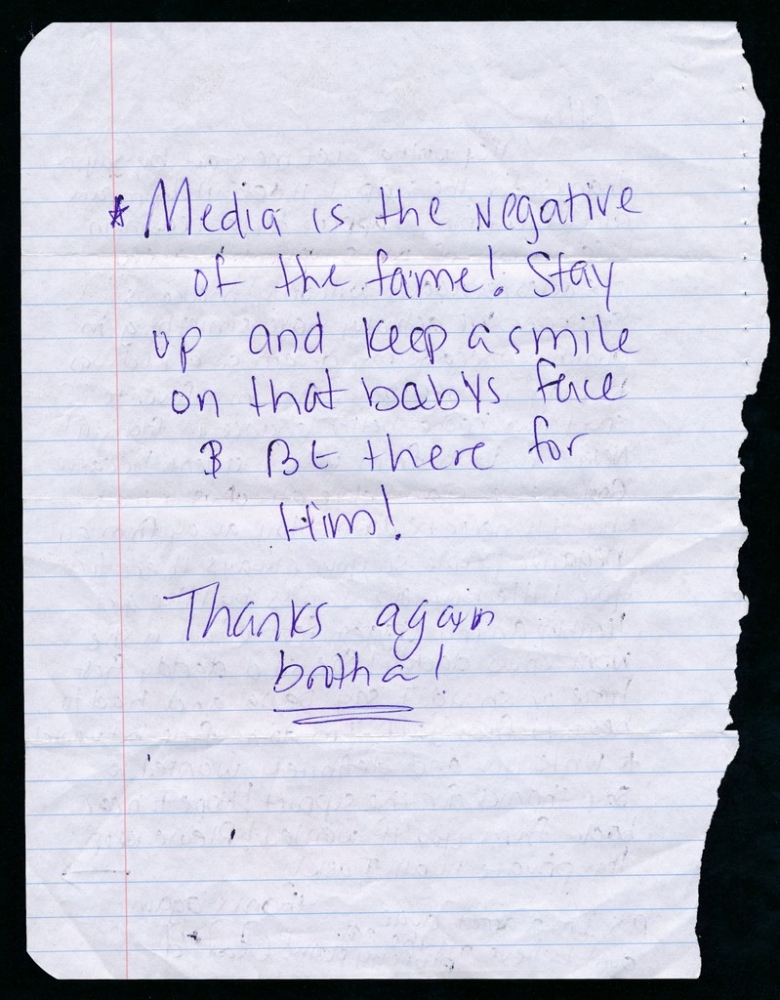 * Media is the Negative
of the fame! Stay
up and keep a smile
on that babys face
& BE there for
Him!
Thanks again
brotha!